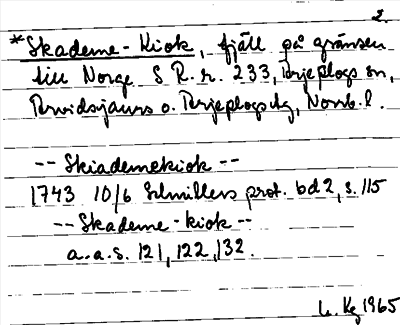 2.
*Skademe-Kiok, fjäll på gränsen
till Norge S R.r. 233, Arjeplogs sn,
Arvidsjaurs o. Arjeplogs tg, Norrb. l.
-- Skiademekiok --
1743 10/6 Schnitlers prot. bd 2, s. 115
-- Skademe-kiok --
a.a.s. 121, 122, 132.
1965